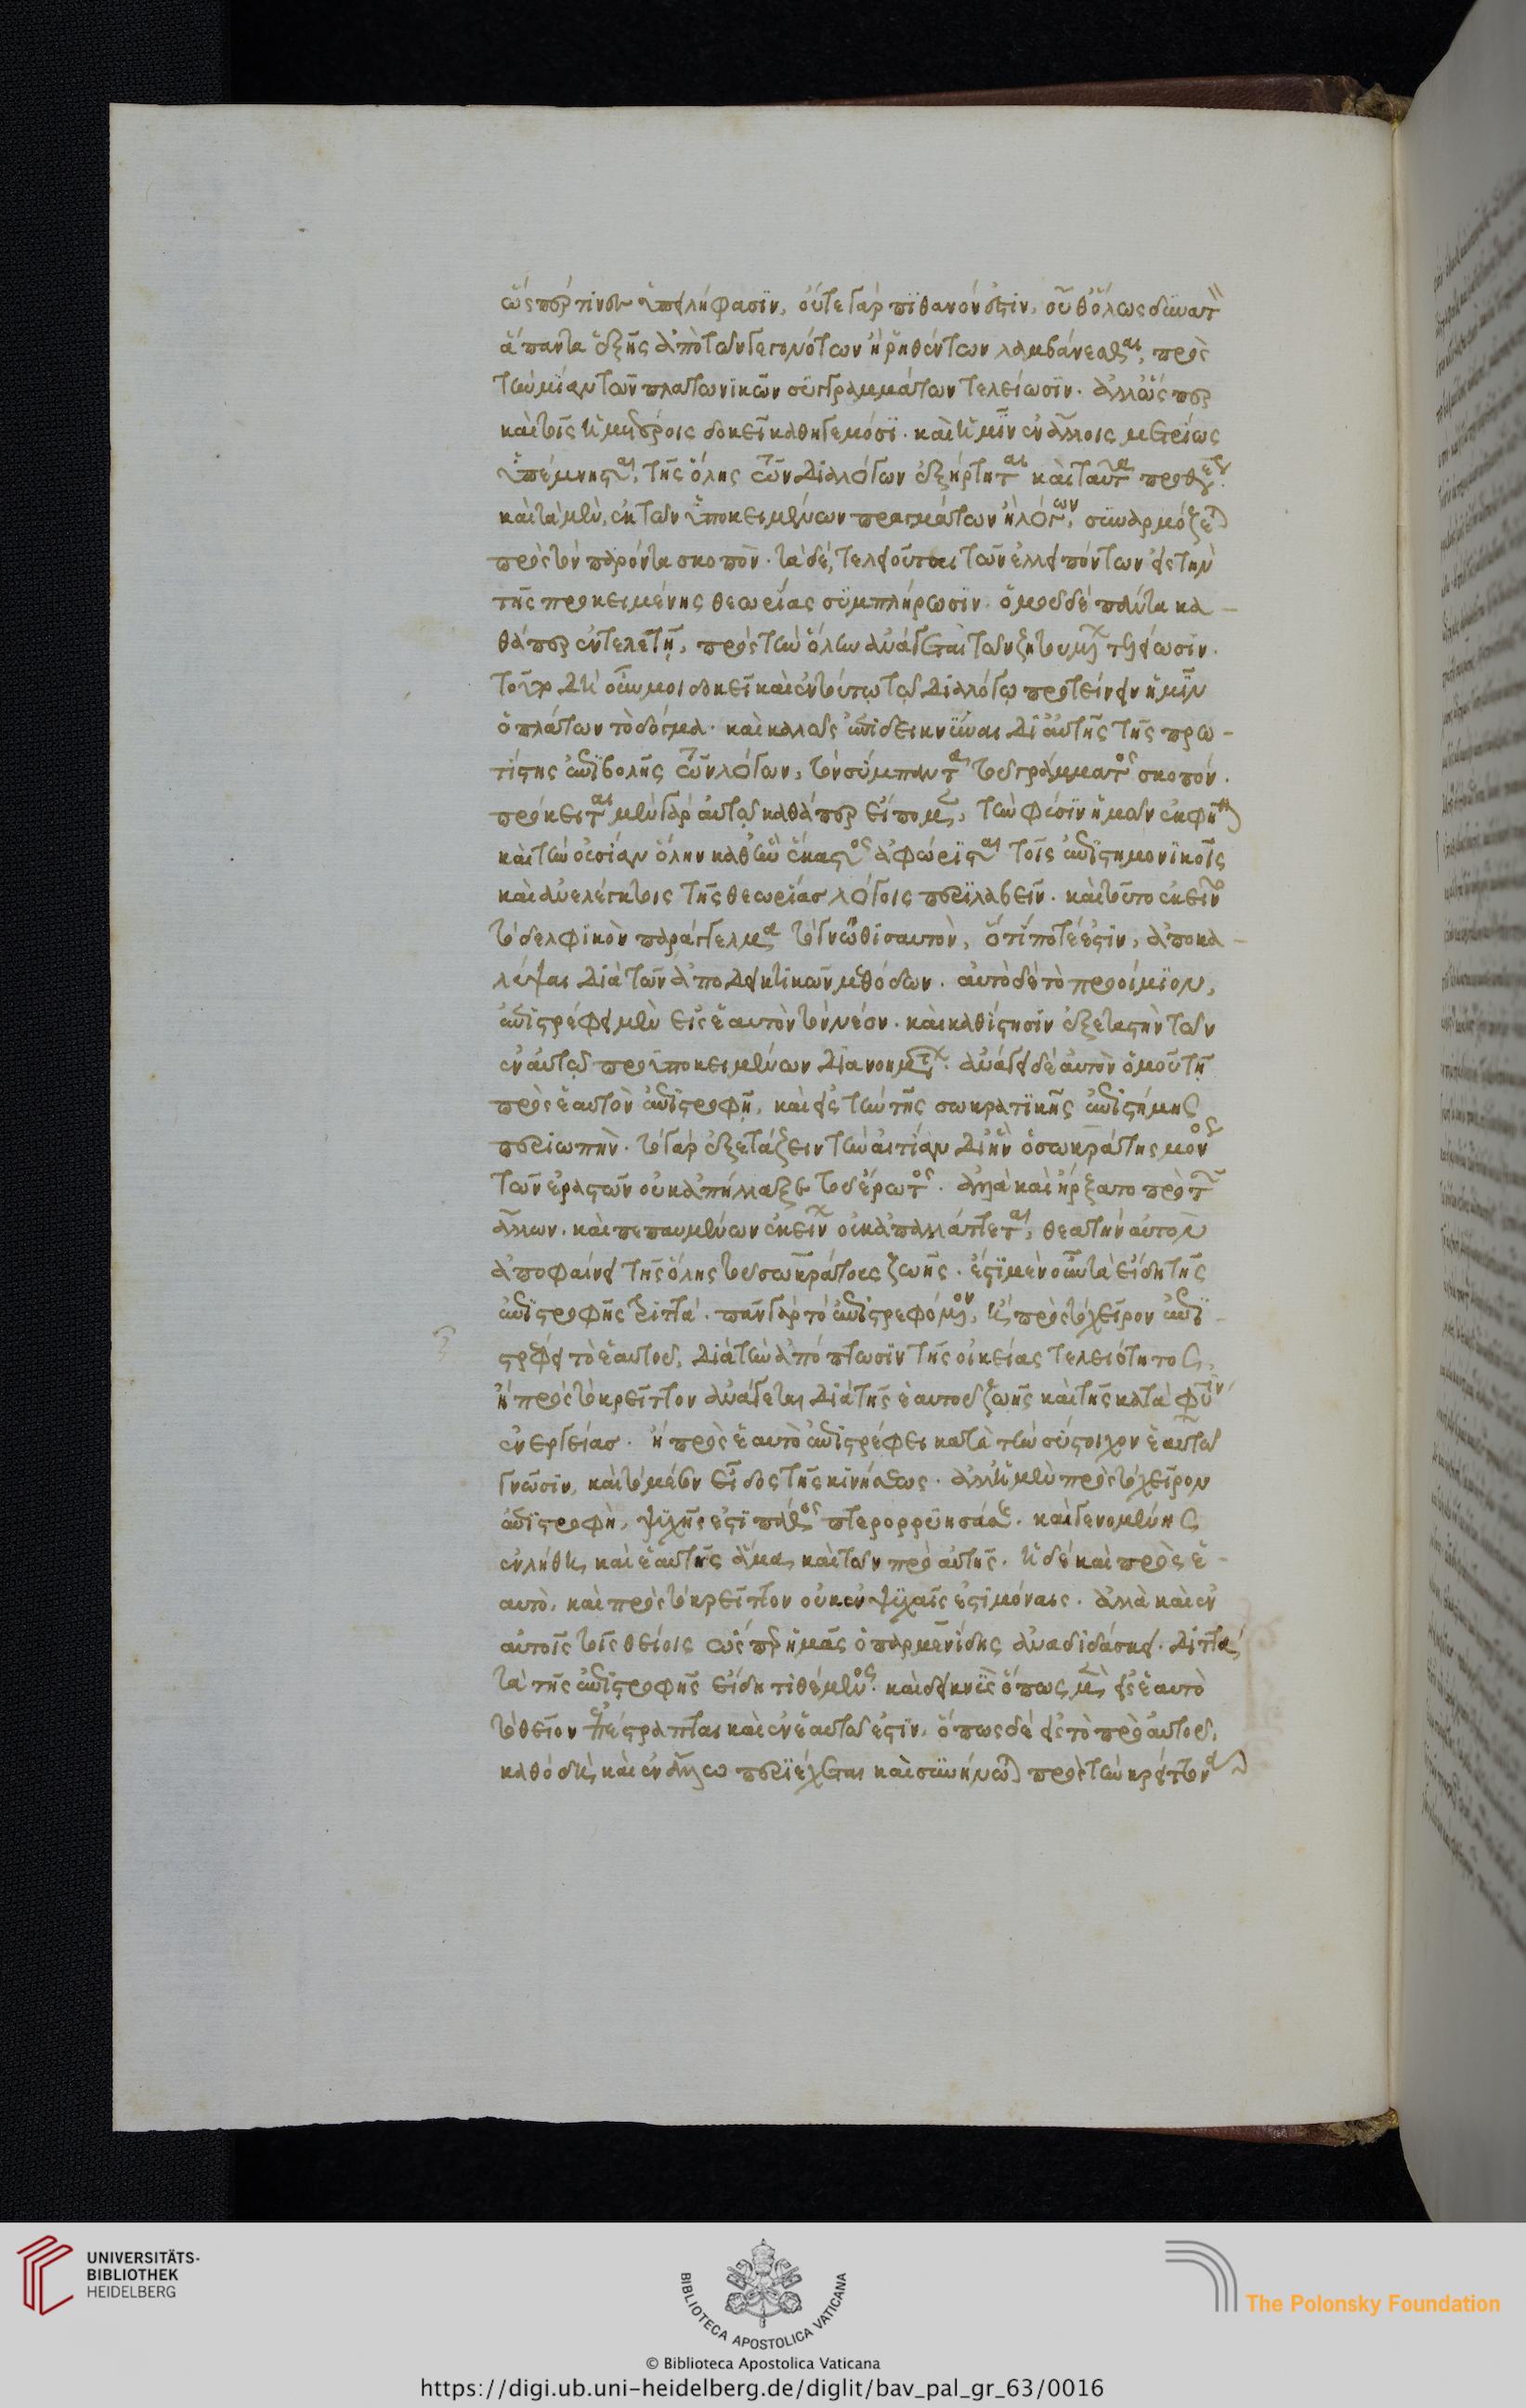 ὥσπερ τινὲς ὑπειλήφασιν, οὔτε γὰρ πιθανόν ἐστιν, οὔθ' ὅλως δυνατὸν
ἅπαντα ἑξῆς ἀπὸ τῶν γεγονότων ἢ ῥηθέντων λαμβάνεσθαι, πρὸς
τὴν μίαν τῶν πλατωνικῶν συγγραμμάτων τελείωσιν. ἀλλ' ὥσπερ
καὶ τοῖς ἡμετέροις δοκεῖ καθηγεμόσι. καὶ ἡμῖν ἐν ἄλλοις μετρίως
ὑπέμνησται, τῆς ὅλης τῶν διαλόγων ἐξήρτηται καὶ ταῦτα προθέσεως.
καὶ τὰ μὲν, ἐκ τῶν ὑποκειμένων πραγμάτων ἢ λόγων, συναρμόζεται
πρὸς τὸν παρόντα σκοπόν. τὰ δὲ, τελειοῦται τῶν ἐλλειπόντων εἰς τὴν
τῆς προκειμένης θεωρίας συμπλήρωσιν. ὁμοῦ δὲ πάντα κα-
θάπερ ἐν τελετῇ, πρὸς τὴν ὅλην ἀνάγεται τῶν ζητουμένων τελείωσιν.
τοιγαροῦν μοι δοκεῖ καὶ ἐν τούτῳ τῷ διαλόγῳ προτείνειν ἡμῖν
ὁ πλάτων τὸ δόγμα. καὶ καλῶς ἐπιδεικνύναι δι' αὐτῆς τῆς πρω-
τίστης ἐπιβολῆς τῶν λόγων, τὸν σύμπαντα τοῦ γράμματος σκοπόν.
πρόκειται μὲν γὰρ αὐτῷ καθάπερ εἴπομεν, τὴν φύσιν ἡμῶν ἐκφῆναι
καὶ τὴν οὐσίαν ὅλην καθ' ἣν ἕκαστος ἀφώρισται τοῖς ἐπιστημονικοῖς
καὶ ἀνελέγκτοις τῆς θεωρίας λόγοις περιλαβεῖν. καὶ τοῦτο ἐκεῖνο
τὸ δελφικὸν παράγγελμα τὸ γνῶθι σαυτὸν, ὅ τί ποτέ ἐστιν, ἀποκα-
λύψαι διὰ τῶν ἀποδεικτικῶν μεθόδων. αὐτὸ δὲ τὸ προοίμιον,
ἐπιστρέφει μὲν εἰς ἑαυτὸν τὸν νέον. καὶ καθίστησιν ἐξεταστὴν τῶν
ἐν αὐτῷ προϋποκειμένων διανοημάτων. ἀνάγει δὲ αὐτὸν ὁμοῦ τῇ
πρὸς ἑαυτὸν ἐπιστροφῇ, καὶ εἰς τὴν τῆς σωκρατικῆς ἐπιστήμης
περιωπήν. τὸ γὰρ ἐξετάζειν τὴν αἰτίαν δι' ἣν ὁ σωκράτης μόνος
τῶν ἐραστῶν οὐκ ἀπήλλαξε τοῦ ἔρωτος. ἀλλὰ καὶ ἤρξατο πρὸ τῶν
ἄλλων. καὶ πεπαυμένων ἐκείνων οὐκ ἀπαλλάττεται, θεατὴν αὐτὸν
ἀποφαίνει τῆς ὅλης τοῦ σωκράτους ζωῆς. ἔστι μὲν οὖν τὰ εἴδη τῆς
ἐπιστροφῆς τριττά. πᾶν γὰρ τὸ ἐπιστρεφόμενον, ἢ πρὸς τὸ χεῖρον ἐπι-
στρέφει τὸ ἑαυτοῦ, διὰ τὴν ἀπόπτωσιν τῆς οἰκείας τελειότητος,
ἢ πρὸς τὸ κρεῖττον ἀνάγεται διὰ τῆς ἑαυτοῦ ζωῆς καὶ τῆς κατὰ φύσιν
ἐνεργείας. ἢ πρὸς ἑαυτὸ ἐπιστρέφει κατὰ τὴν σύστοιχον ἑαυτῷ
γνῶσιν, καὶ τὸ μέσον εἶδος τῆς κινήσεως. ἀλλ' ἡ μὲν πρὸς τὸ χεῖρον
ἐπιστροφὴ, ψυχῆς ἐστι πάθος πτερορρυησάσης. καὶ γενομένης
ἐν λήθῃ, καὶ ἑαυτῆς ἅμα, καὶ τῶν πρὸ αὐτῆς. ἡ δὲ καὶ πρὸς ἑ-
αυτὸ, καὶ πρὸς τὸ κρεῖττον οὐκ ἐν ψυχαῖς ἐστι μόναις. ἀλλὰ καὶ ἐν
αὐτοῖς τοῖς θείοις ὥσπερ ἡμᾶς ὁ παρμενίδης ἀναδιδάσκει. διττὰ
τὰ τῆς ἐπιστροφῆς εἴδη τιθέμενος. καὶ δεικνὺς ὅπως μὲν εἰς ἑαυτὸ
τὸ θεῖον ἐπέστραπται καὶ ἐν ἑαυτῷ ἐστιν, ὅπως δὲ εἰς τὸ πρὸ αὐτοῦ,
καθὸ δὴ καὶ ἐν ἄλλῳ περιέχεται καὶ συνήνωται πρὸς τὴν κρείττονα
UNIVERSITÄTS-
BIBLIOTHEK
HEIDELBERG
BIBLIOTECA APOSTOLICA VATICANA
The Polonsky Foundation
© Biblioteca Apostolica Vaticana
https://digi.ub.uni-heidelberg.de/diglit/bav_pal_gr_63/0016